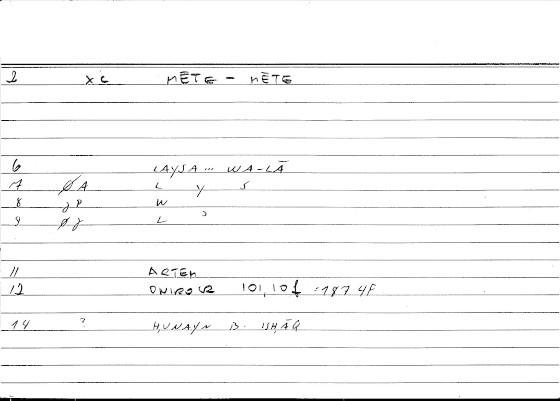 2 xc MĒTE – MĒTE
6 LAYSA ... WA-LĀ
7 ØA L Y S
8 JP W
9 ØJ L ʾ
11 ARTEM
12 ONIROCR 101,10 :187 4F
14 ? ḤUNAYN B. ISḤĀQ